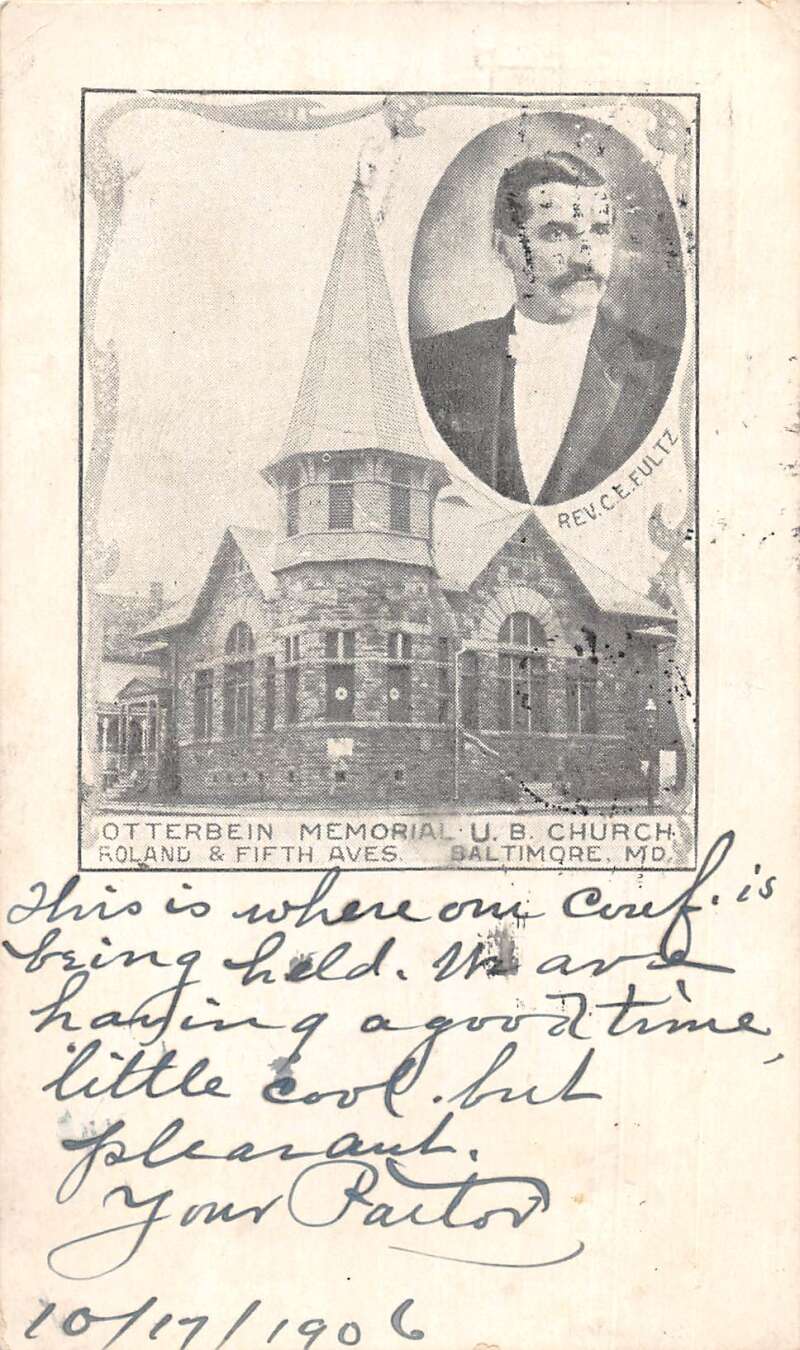 REV. C. E. FULTZ
OTTERBEIN MEMORIAL U. B. CHURCH.
ROLAND & FIFTH AVES. BALTIMORE, MD.
This is where our Conf. is
being held. We are
having a good time,
little cool. but
pleasant.
Your Pastor
10/17/1906